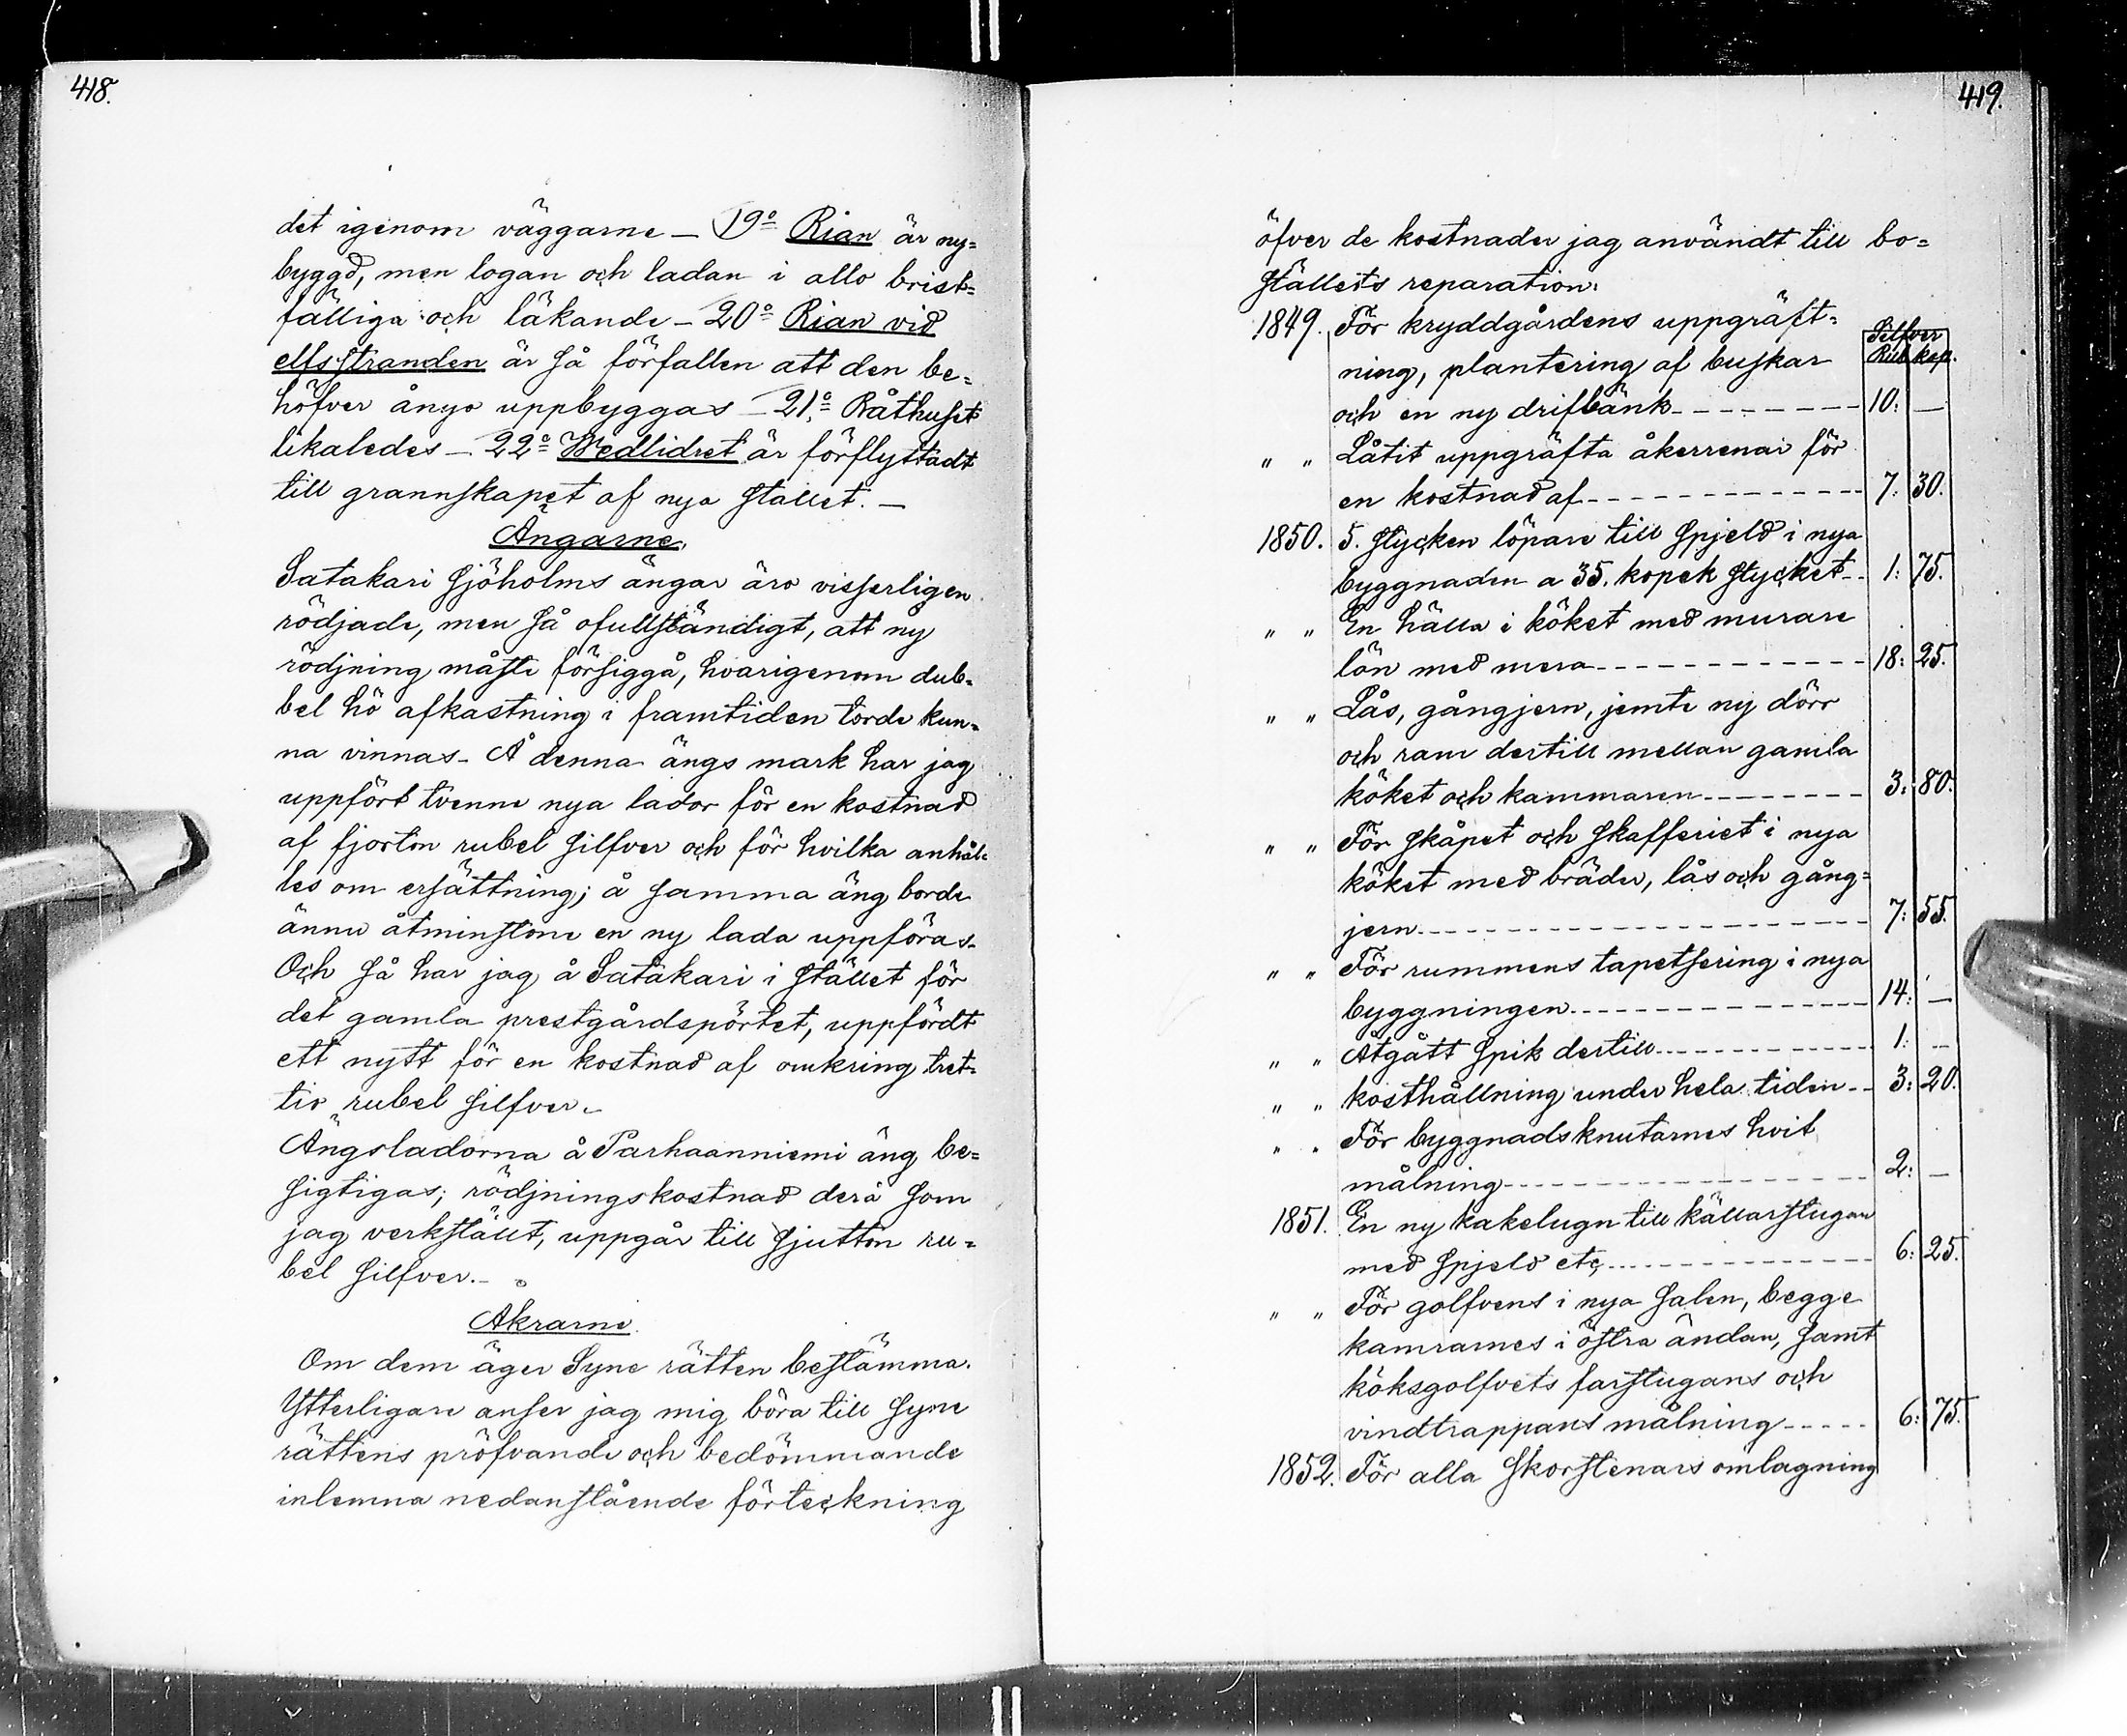 418.
det igenom väggarne – 19º Rian är ny=
byggd, men logan och ladan i allo brist=
fälliga och läkande – 20º Rian vid
elfsstranden är så förfallen att den be=
höfver ånyo uppbyggas – 21º Båthuset
likaledes – 22º Wedlidret är förflyttadt
till grannskapet af nya stallet. –
Ängarne.
Satakari sjöholms ängar äro visserligen
rödjade, men så ofullständigt, att ny
rödjning måste försiggå, hvarigenom dub=
bel hö afkastning i framtiden torde kun=
na vinnas – Å denna ängs mark har jag
uppfört tvenne nya lador för en kostnad
af fjorton rubel silfver och för hvilka anhål=
les om ersättning; å samma äng borde
ännu åtminstone en ny lada uppföras –
Och så har jag å Satakari i stället för
det gamla prestgårdspörtet, uppfördt
ett nytt för en kostnad af omkring tret=
tio rubel silfver. –
Ängsladorna å Parhaanniemi äng be=
sigtigas; rödjningskostnad derå som
jag verkställt, uppgår till sjutton ru=
bel silfver. –
Åkrarne.
Om dem äger Syne rätten bestämma.
Ytterligare anser jag mig böra till Syne
rättens pröfvande och bedömmande
inlemna nedanstående förteckning
419.
öfver de kostnader jag användt till bo=
ställets reparation:
Silfver
Rub. kop.
1849. För kryddgårdens uppgräft=
ning, plantering af buskar
och en ny drifbänk 10: —
" " Låtit uppgräfta åkerrenar för
en kostnad af 7: 30.
1850. 5. stycken löpare till spjeld i nya
byggnaden a 35. kopek stycket 1: 75.
" " En hälla i köket med murare
lön med mera 18: 25.
" " Lås, gångjern, jemte ny dörr
och ram dertill mellan gamla
köket och kammaren 3: 80.
" " För skåpet och skafferiet i nya
köket med bräder, lås och gång=
jern 7: 55.
" " För rummens tapetsering i nya
byggningen 14: —
" " Åtgått spik dertill 1: —
" " kosthållning under hela tiden 3: 20.
" " För byggnadsknutarnes hvit
målning 2: —
1851. En ny kakelugn till källarstugan
med spjeld etc. 6: 25.
" " För golfvens i nya salen, begge
kamrarnes i östra ändan, samt
köksgolfvets farstugans och
vindtrappans målning 6: 75.
1852. För alla skorstenars omlagning